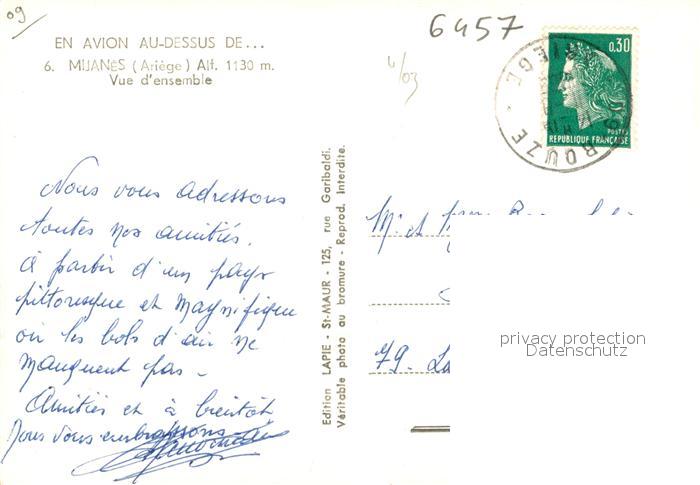 09
6457
EN AVION AU-DESSUS DE...
6. MIJANÈS (Ariège) Alt. 1130 m.
Vue d'ensemble
0,30
POSTES
REPUBLIQUE FRANÇAISE
ROUZE
Nous vous adressons
toutes nos amitiés.
à partir d'un pays
pittoresque et magnifique
où les bols d'air ne
manquent pas -
Amitiés et à bientôt
Nous vous embrassons
Edition LAPIE - St-MAUR - 125, rue Garibaldi.
Véritable photo au bromure - Reprod. Interdite.
M. et
79. La
privacy protection
Datenschutz